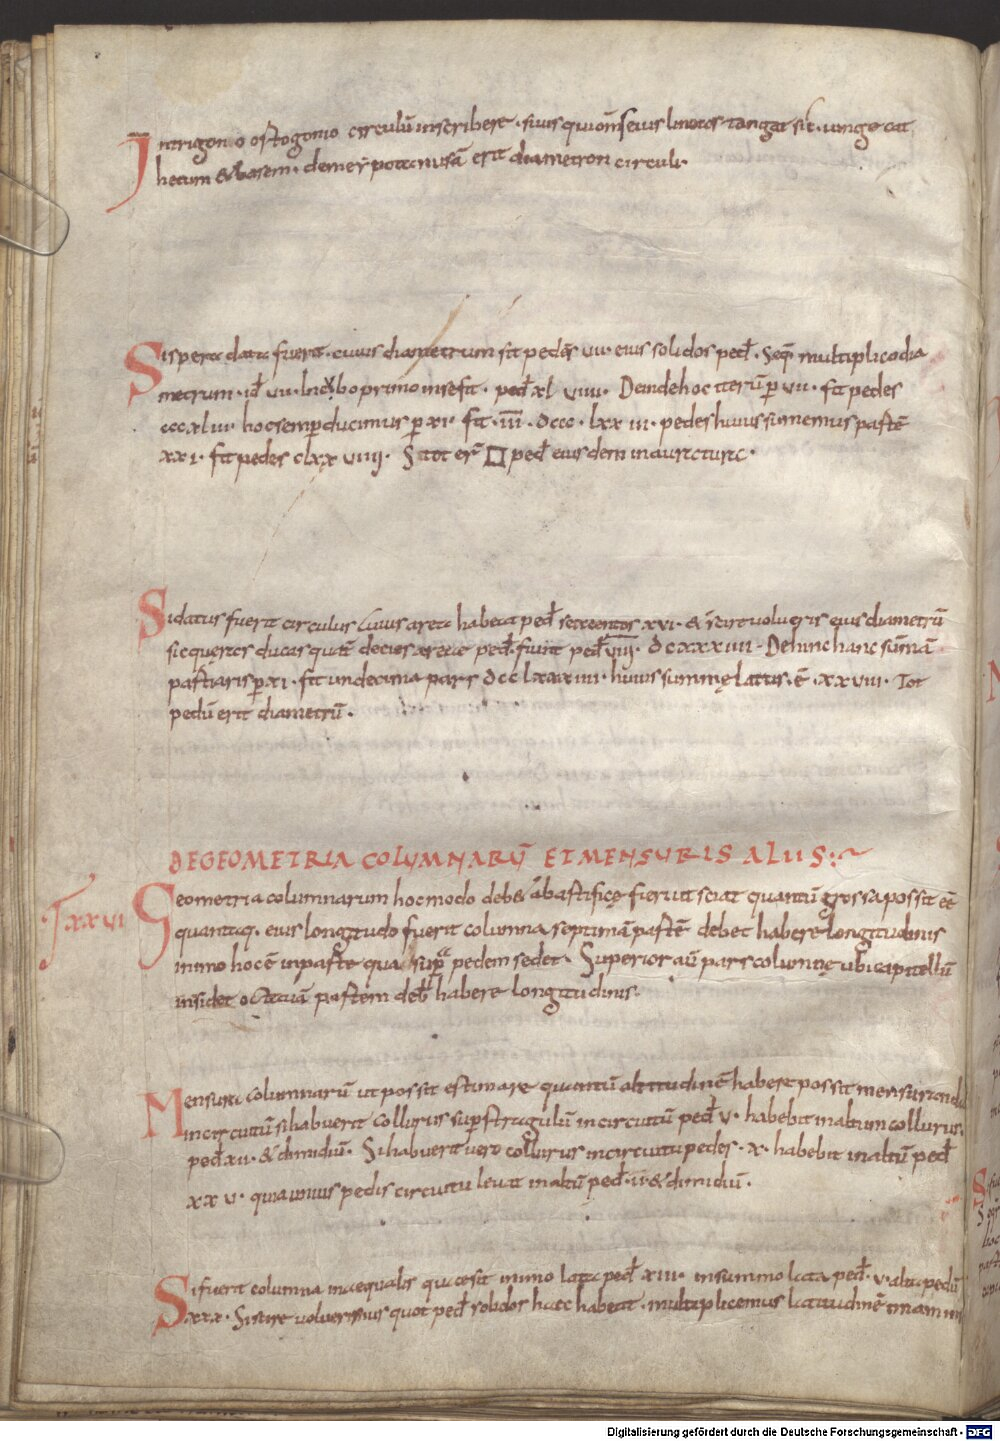 In trigono ostogonio circulū inscribere · siuis qui om̄s eius lineas tangat sic · iunge cat
hecum & basem · deme ypotenusā erit diametron circuli ·
Si spera data fuerit · cuius diametrum sit pedes vii · eius solidos ped · Seq̄ multiplico dia
metrum · id vii · primo in se fit · ped xl viiii · Deinde hoc iterū p vii · fit pedes
cccxl iii · hoc semp ducimus p xi · fit · iii · dccc · lxx iii · pedes huius sumemus partē
xxi · fit pedes clxx viiii · S tot er̄ ped eiusdem
Si datus fuerit circulus cuius area habeat ped sexcentos xvi · & scire volueris eius diametrū
sic queres ducas quat̄ decies areae ped · fiunt ped viii · dcxxxiiii · Dehinc hanc summā
partiaris p xi · fit undecima pars dcclxxxiiii · huius summę latus · ē · xxviii · Tot
pedū erit diametrū ·
DE GEOMETRIA COLUMNARŪ ET MENSURIS ALIIS :~
xxvi
Geometria columnarum hoc modo deb& ab artifice fieri ut sciat quantū grossa possit eē
quantaq · eius longitudo fuerit columna septimā partē debet habere longitudinis
in imo hoc ē in parte qua supra pedem sedet · Superior aū pars columnę ubi capitellū
insidet octauā partem deb habere longitudinis ·
Mensura columnarū ut possit estimare quantū altitudinē habere possit mensuranda
in circuitū si habuerit collurus sup stragulū in circuitū ped v · habebit in altum collurus
ped xii · & dimidiū · Si habuerit vero collurus in circuitu pedes · x · habebit in altū ped
xx v · quia unius pedis circuitu leuat in altū ped · ii · & dimidiū ·
Si fuerit columna inaequalis quae sit in imo lata ped xiii · in summo lata ped · v · alta pedū
xxx · Si scire voluerimus quot ped solidos haec habeat · multiplicemus latitudinē imam in